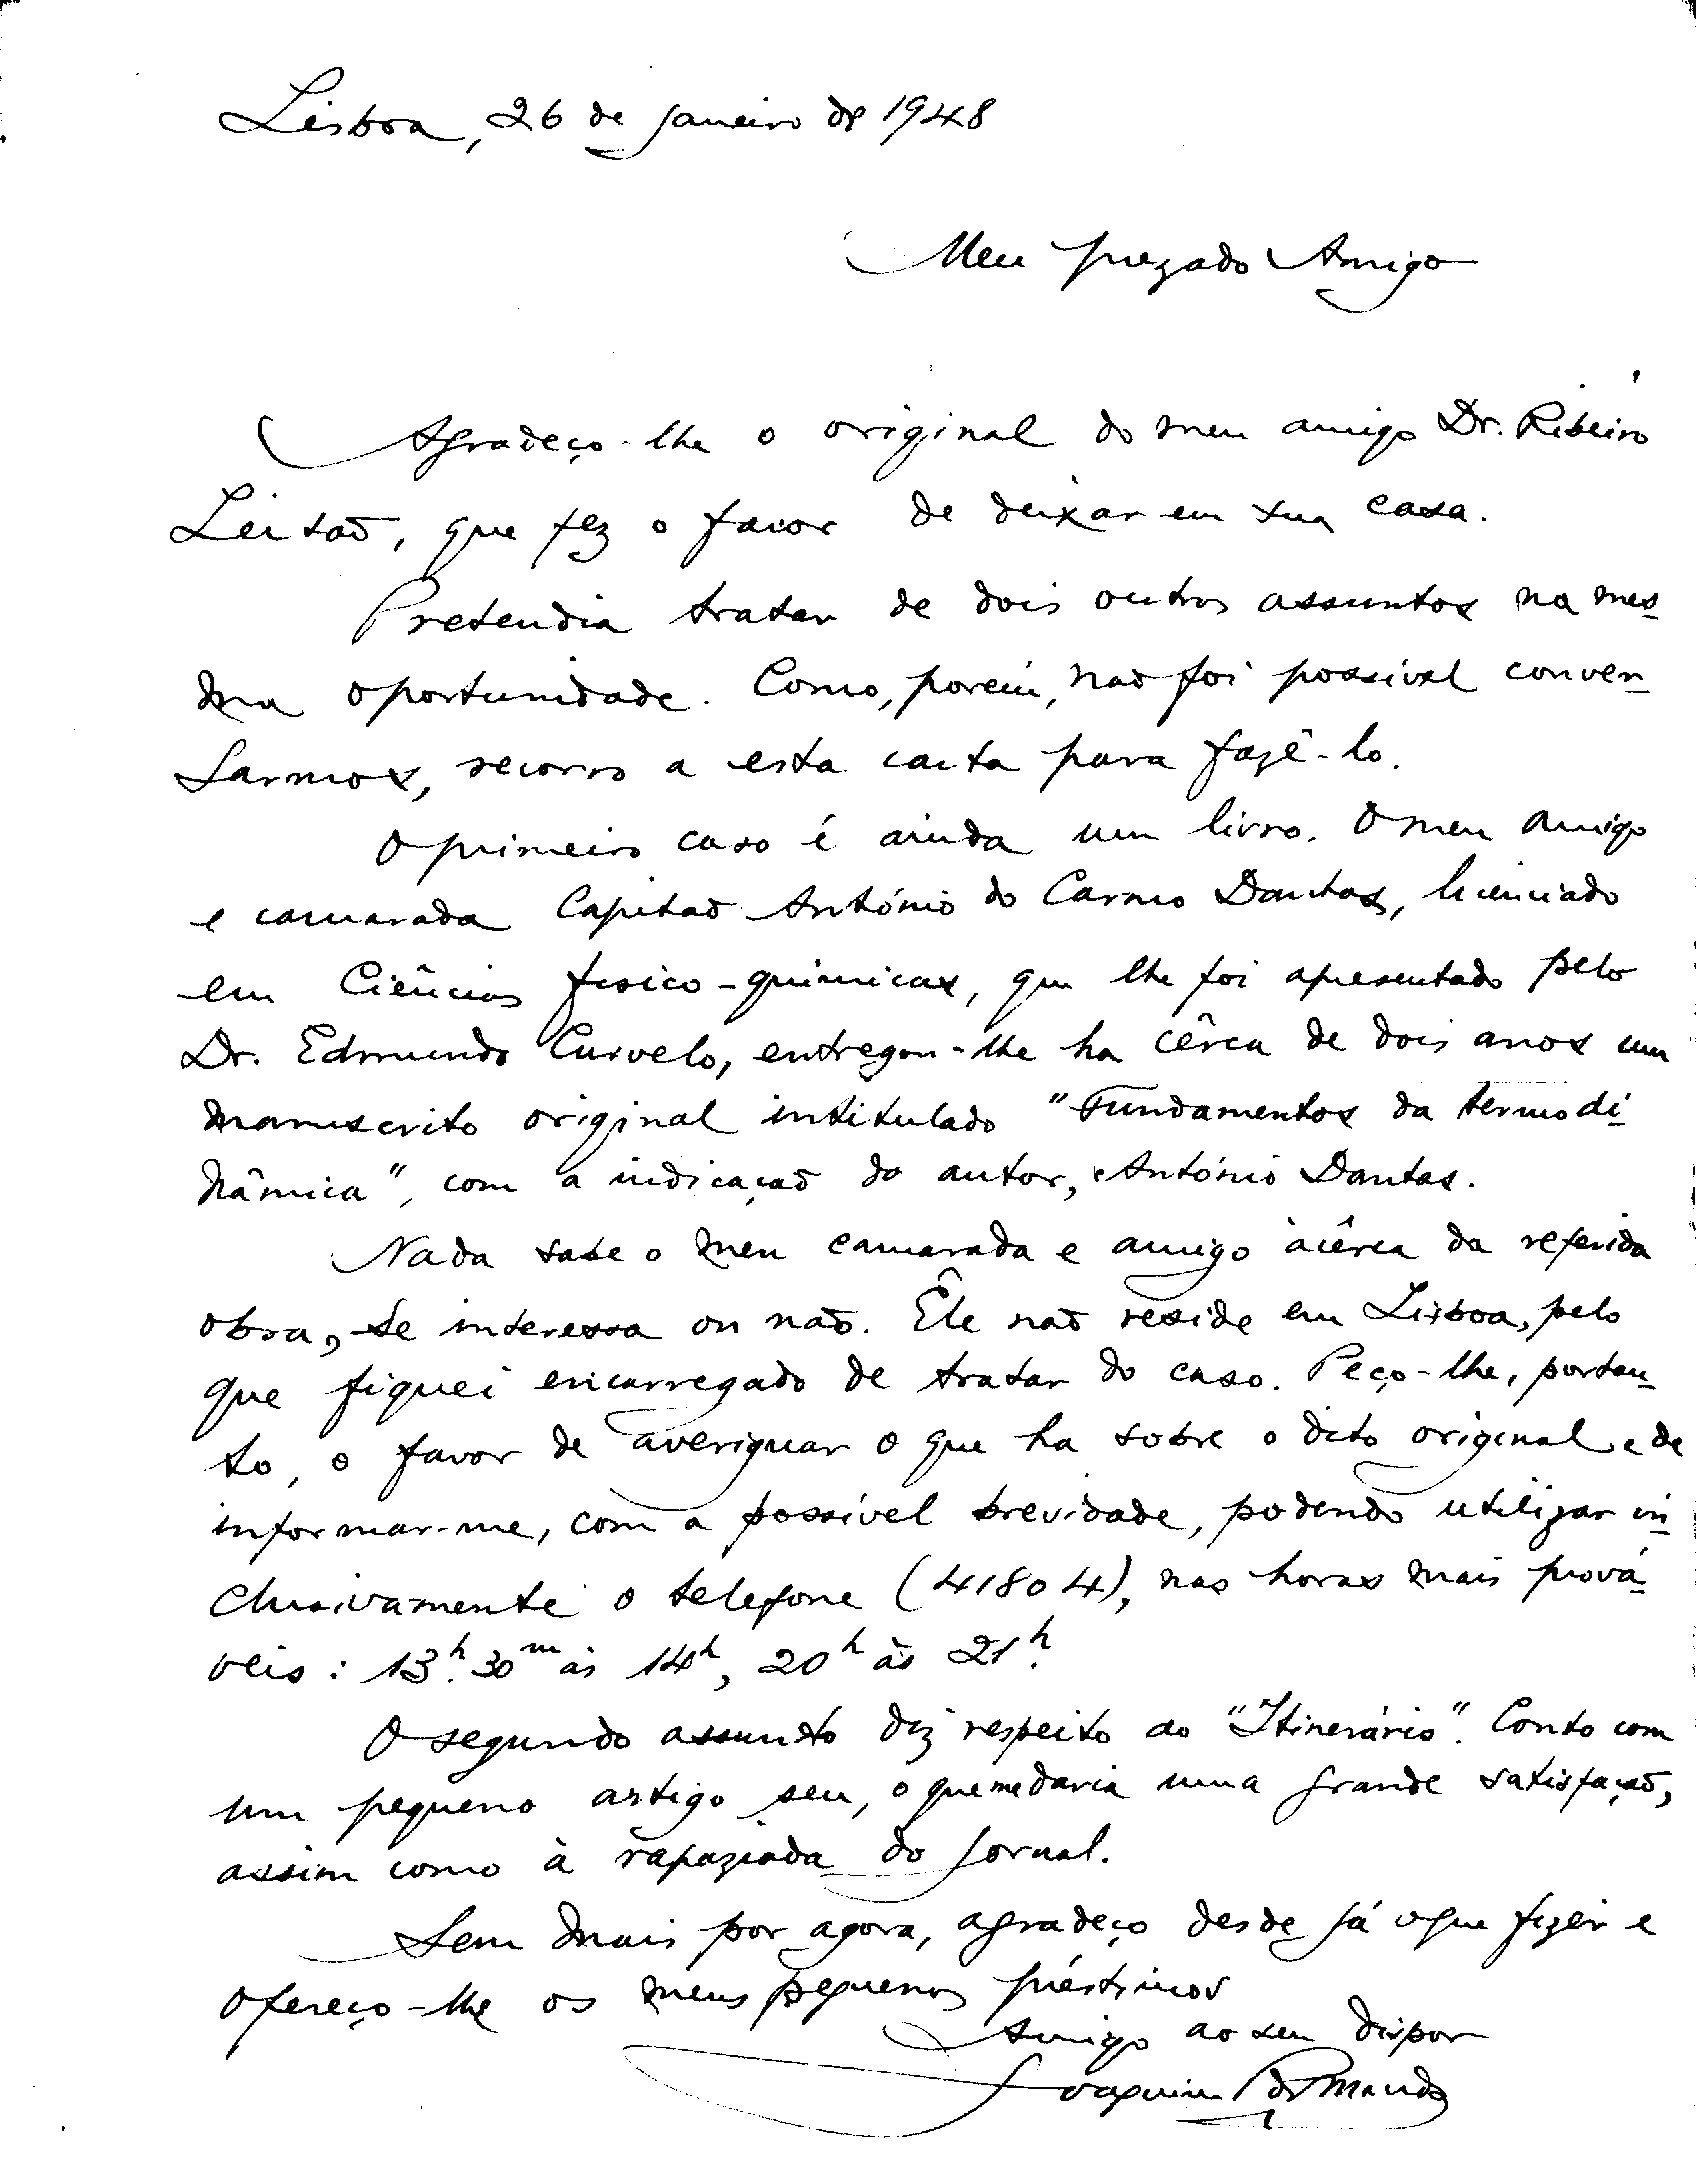 Lisboa, 26 de Janeiro de 1948
Meu prezado Amigo
Agradeço-lhe o original do meu amigo Dr. Ribeiro
Leitão, que fez o favor de deixar em sua casa.
Pretendia tratar de dois outros assuntos na mes-
ma oportunidade. Como, porém, não foi possível conver-
sarmos, recorro a esta carta para fazê-lo.
O primeiro caso é ainda um livro. O meu amigo
e camarada Capitão António do Carmo Dantas, licenciado
em Ciências fisico-quimicas, que lhe foi apresentado pelo
Dr. Edmundo Curvelo, entregou-lhe ha cêrca de dois anos um
manuscrito original intitulado "Fundamentos da termodi-
nâmica", com a indicação do autor, António Dantas.
Nada sabe o meu camarada e amigo àcêrca da referida
obra, se interessa ou não. Êle não reside em Lisboa, pelo
que fiquei encarregado de tratar do caso. Peço-lhe, portan-
to, o favor de averiguar o que ha sobre o dito original e de
informar-me, com a possível brevidade, podendo utilizar in-
clusivamente o telefone (41804), nas horas mais prová-
veis: 13h.30m às 14h, 20h às 21h.
O segundo assunto diz respeito ao "Itinerário". Conto com
um pequeno artigo seu, o que me daria uma grande satisfação,
assim como à rapaziada do Jornal.
Sem mais por agora, agradeço desde já o que fizer e
ofereço-lhe os meus pequenos préstimos
Amigo ao seu dispor
Joaquim